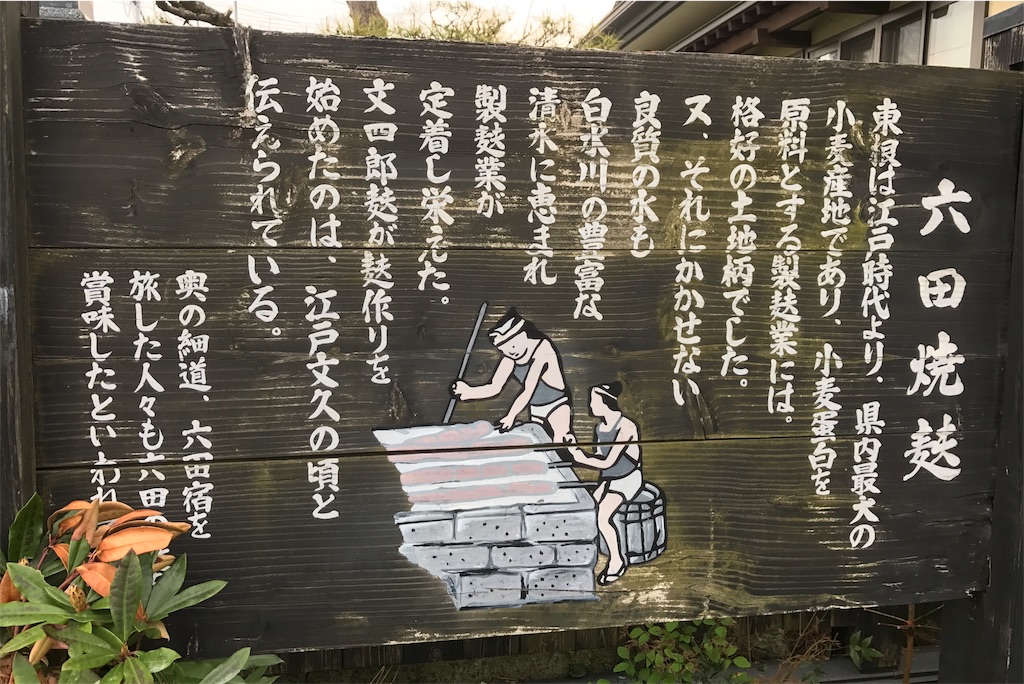 六田焼麩
東根は江戸時代より、県内最大の
小麦産地であり、小麦蛋白を
原料とする製麩業には。
格好の土地柄でした。
ヌ、それにかかせない
良質の水も
白水川の豊富な
清水に恵まれ
製麩業が
定着し栄えた。
文四郎麩が麩作りを
始めたのは、江戸文久の頃と
伝えられている。
奥の細道、六田宿を
旅した人々も六田の
賞味したといわれ